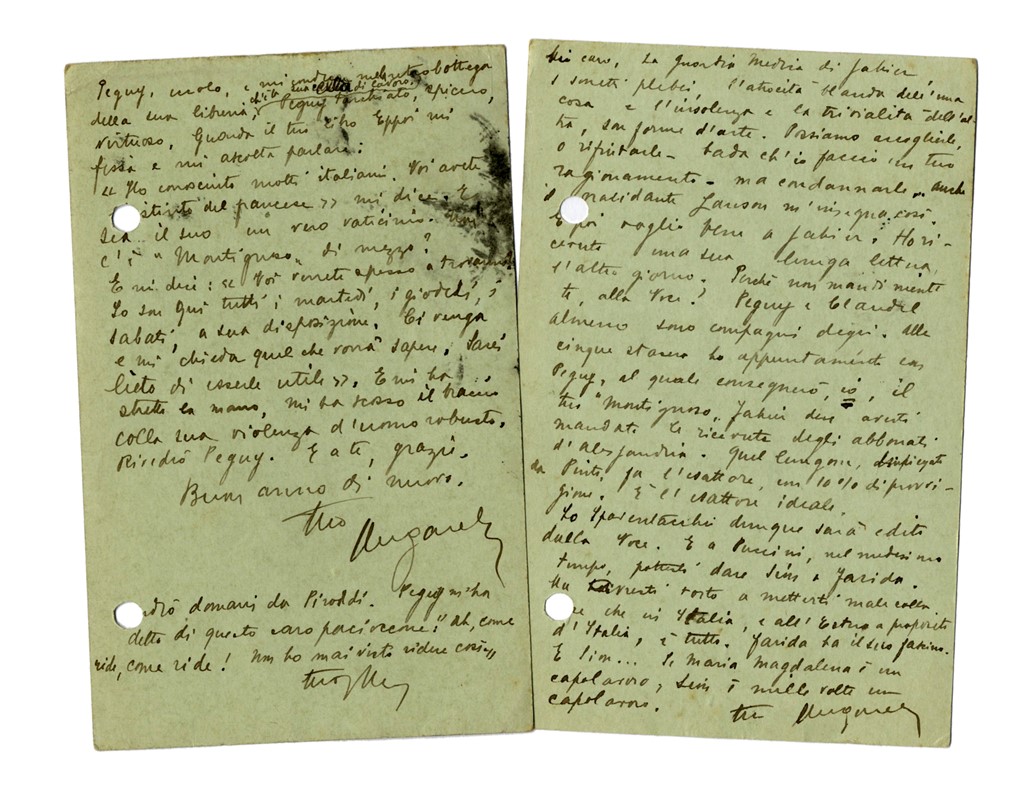 Peguy, molo, e mi nella bottega
ch'è la sua di lavoro.
della sua libreria, Peguy tarchiato, spiccio,
virtuoso. Guarda il tuo libro Eppoi mi
fissa e mi ascolta parlare:
« Ho conosciuto molti italiani. Voi avete
del francese » mi dice. E
sia il suo un vero vaticinio.
c'è "Montignoso" di mezzo?
E mi dice: « Voi verrete spesso a trovarmi
Io son qui tutti i martedì, i giovedì, i
sabati, a sua disposizione. Ci venga
e mi chieda quel che vorrà sapere. Sarei
lieto di esserle utile ». E mi ha
stretto la mano, mi ha scosso il braccio
colla sua violenza d'uomo robusto.
Rivedrò Peguy. E a te, grazie.
Buon anno di nuovo.
tuo
Ungaretti
domani da Piroddi. Peguy m'ha
detto di questo caro pacioccone: "ah, come
ride, come ride! Non ho mai visto ridere così"
tuo
Mio caro, La Guardia Medica di Jahier
i sonetti plebei, l'atrocità blanda dell'una
cosa e l'insolenza e la trivialità dell'al-
tra, son forme d'arte. Possiamo accoglierle,
o rifiutarle - bada ch'io faccio un tuo
ragionamento - ma condannarle.. anche
Lanson m'insegna così.
E poi voglio bene a Jahier. Ho ri-
cevuto una sua lunga lettera,
l'altro giorno. Perché non mandi niente
te, alla Voce? Peguy e Claudel
almeno sono compagni degni. Alle
cinque stasera ho appuntamento con
Peguy, al quale consegnerò, io, il
tuo "Montignoso". Jahier deve averti
mandato le ricevute degli abbonati
d'Alessandria. Quel lungone, impiegato
da Pinto, fa l'esattore, con 10% di provvi-
gione. È l'esattore ideale.
Lo Sparentacchio dunque sarà edito
dalla Voce. E a Puccini, nel medesimo
tempo, potresti dare Sein e Farida.
Ma avresti torto a metterti male colla
che in Italia, e all'Estero a proposito
d'Italia, è tutto. Farida ha il suo fascino.
E Sein... Se Maria Magdalena è un
capolavoro, Sein è mille volte un
capolavoro.
tuo Ungaretti